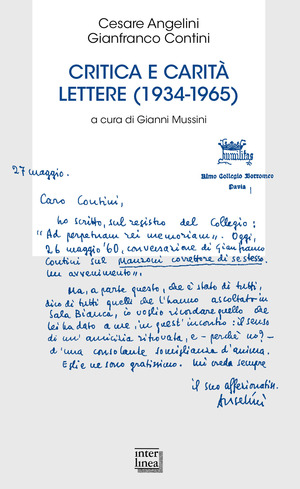 Cesare Angelini
Gianfranco Contini
CRITICA E CARITÀ
LETTERE (1934-1965)
a cura di Gianni Mussini
humilitas
27 maggio.
Almo Collegio Borromeo
Pavia
Caro Contini,
ho scritto, sul registro del Collegio:
"Ad perpetuam rei memoriam". Oggi,
26 maggio '60, conversazione di Gianfranco
Contini sul Manzoni correttore di se stesso.
Un avvenimento".
Ma, a parte questo, che è stato di tutti,
dico di tutti quelli che l'hanno ascoltato in
Sala Bianca, io voglio ricordare quello che
lei ha dato a me, in quest'incontro: il senso
di un'amicizia ritrovata, e - perchè no? -
d'una consolante somiglianza d'anima.
E gliene sono gratissimo. Mi creda sempre
il suo affezionatiss.
Angelini
inter
linea